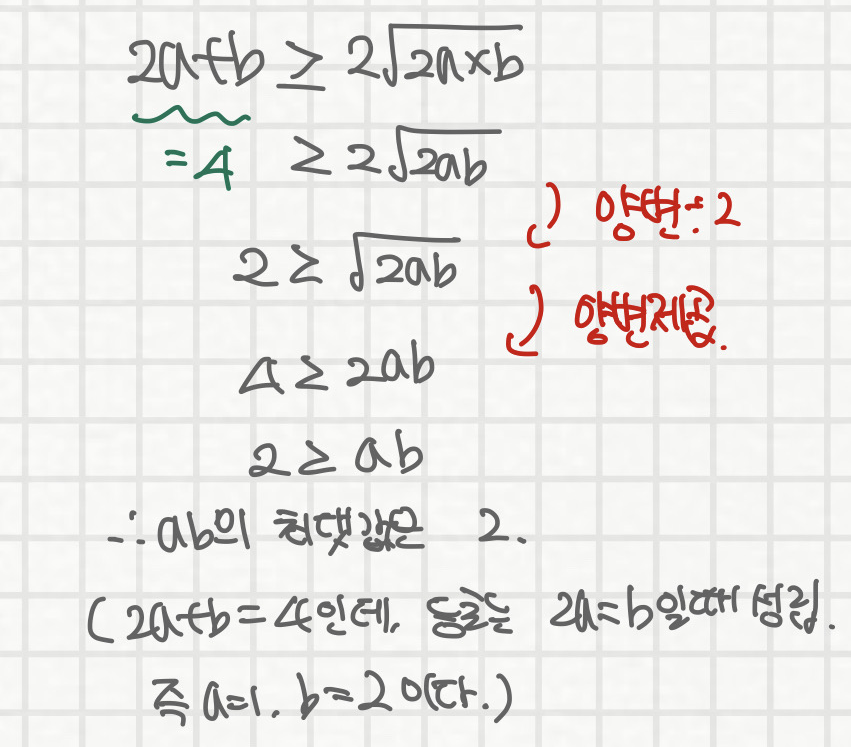 2a+b ≥ 2√(2a×b)
=4 ≥ 2√(2ab)
양변÷2
2 ≥ √(2ab)
양변제곱.
4 ≥ 2ab
2 ≥ ab
∴ ab의 최댓값은 2.
(2a+b=4인데, 등호는 2a=b일때 성립.
즉 a=1, b=2이다.)